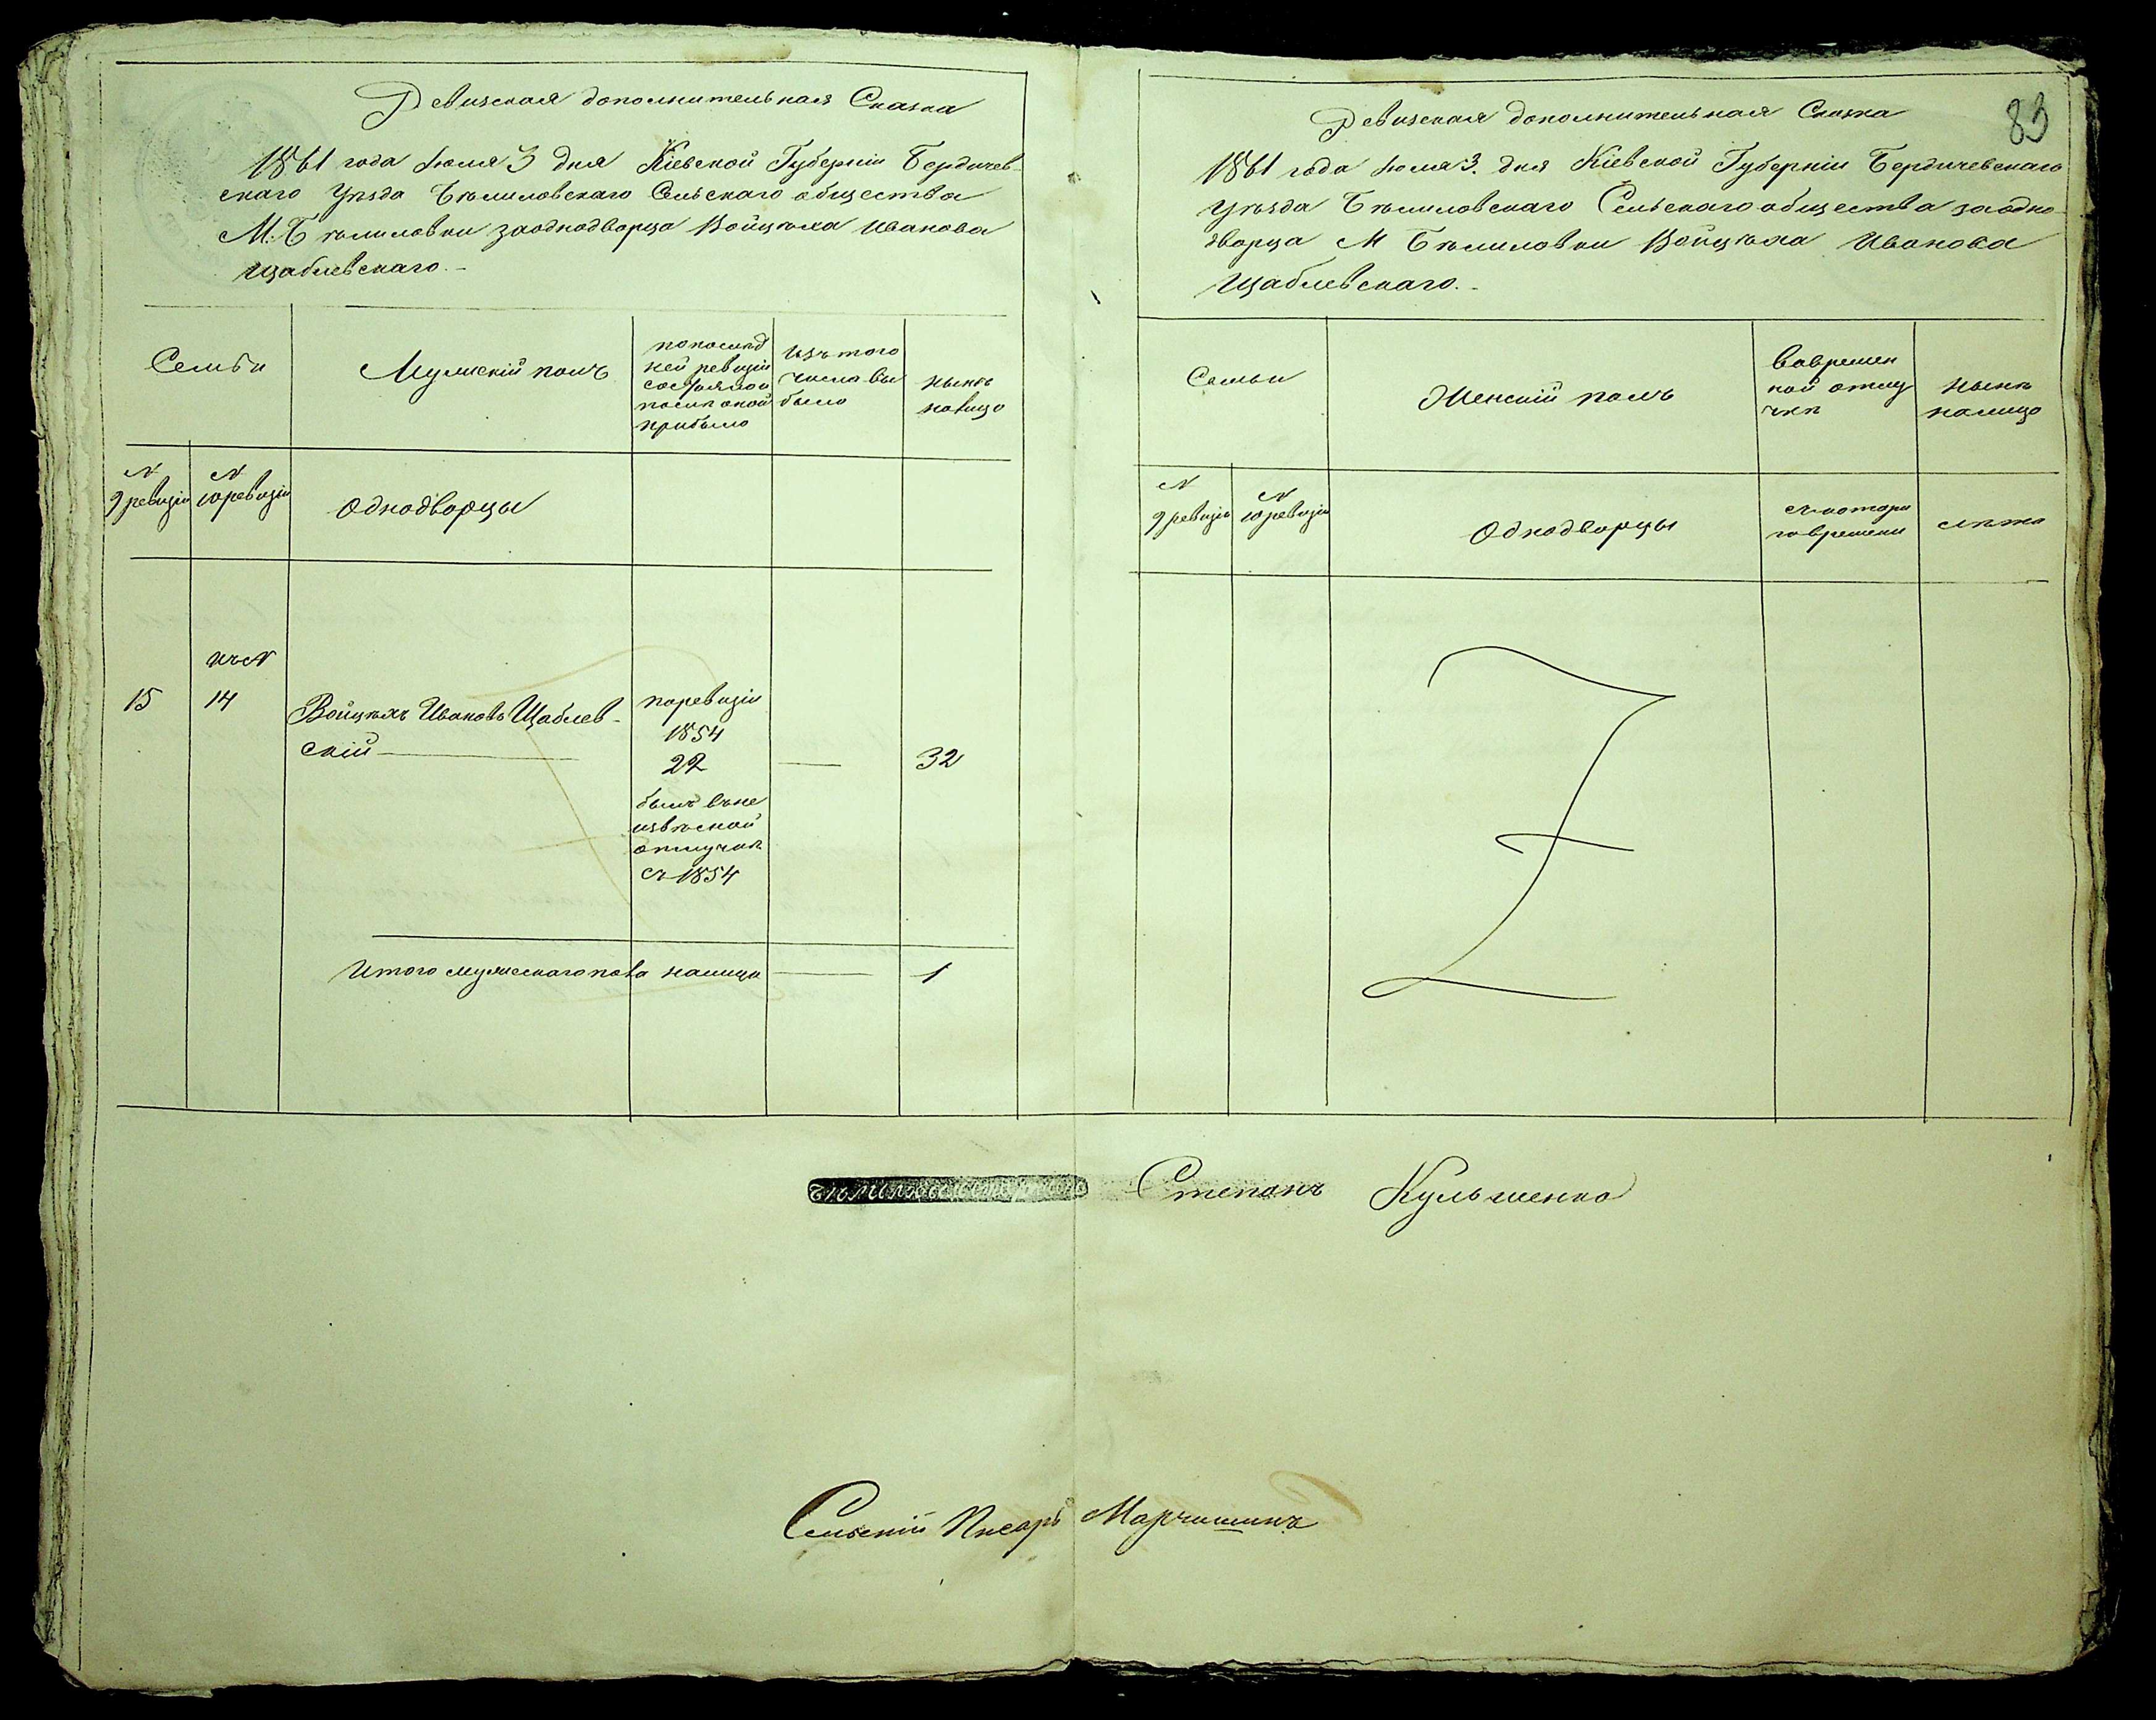 Ревизская дополнительная Сказка
1861 года Іюля 3 дня Кіевской Губерніи Бердичев-
скаго Уѣзда Бѣлиловскаго Сельскаго общества
М. Бѣлиловки заоднодворца Войцѣха Иванова
Щаблевскаго.-
Семьи
Мужскій полъ
по послѣд
ней ревизіи
состояло и
послѣ оной
прибыло
Изъ того
числа вы
было
нынѣ
налицо
N
9 ревизіи
N
10 ревизіи
Однодворцы
15
къ N
14
Войцѣхъ Ивановъ Щаблев-
скій
по ревизіи
1854
22
былъ въ не
извѣсной
отлучкѣ
съ 1854
32
Итого мужескаго пола налицо 1
83
Ревизская дополнительная Сказка
1861 года Іюля 3. дня Кіевской Губерніи Бердичевскаго
Уѣзда Бѣлиловскаго Сельскаго общества заодно-
дворца М Бѣлиловки Войцѣха Иванова
Щаблевскаго.-
Семьи
Женскій полъ
во времен
ной отлу
чкѣ
нынѣ
налицо
N
9 ревизіи
N
10 ревизіи
Однодворцы
съ котора
го времени
лѣта
Степанъ Кульшенко
Сельскій Писарь Марчишинъ